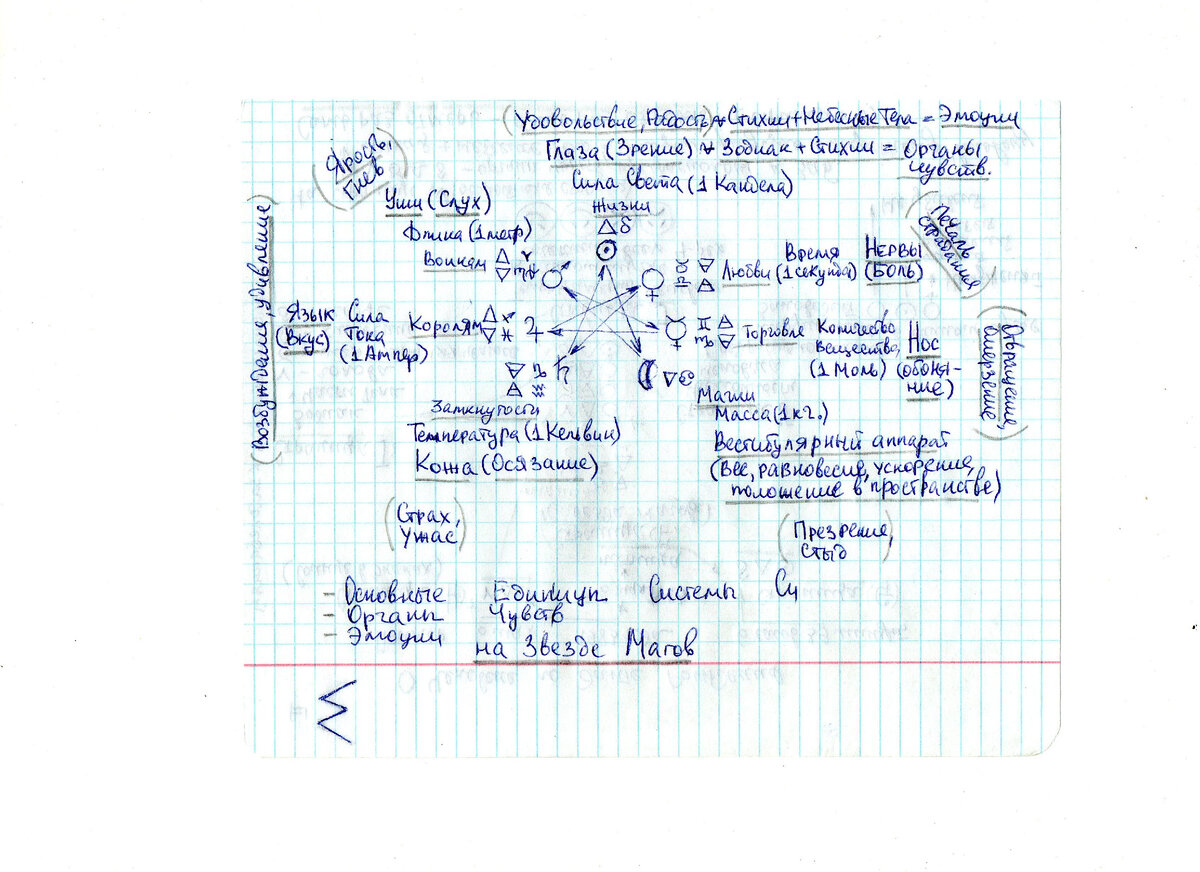 (Удовольствие, Радость) * Стихии + Небесные Тела = Эмоции
Глаза (Зрение) * Зодиак + Стихии = Органы
чувств.
Сила Света (1 Кандела)
Жизни
△ ♌
☉
(Ярость,
Гнев)
Уши (Слух)
Длина (1 метр)
Воинам △ ♈
▽ ♏ ♂
(Возбуждение, удивление)
Язык
(Вкус)
Сила
Тока
(1 Ампер)
Королям △ ♐
▽ ♓ ♃
▽ ♑ ♄
△ ♒
Замкнутости
Температура (1 Кельвин)
Кожа (Осязание)
(Страх,
Ужас)
(Печаль
страдания)
♀ ♉ ▽
♎ △
Любви
Время
(1 секунда)
НЕРВЫ
(БОЛЬ)
☿ ♊ △
♍ ▽
Торговле
Количество
Вещества,
(1 Моль)
Нос
(обоня-
ние)
(Отвращение,
омерзение)
☾ ▽ ♋
Магии
Масса (1 кг.)
Вестибулярный аппарат
(Вес, равновесия, ускорения,
положение в пространстве)
(Презрение,
стыд)
- Основные Единицы Системы Си
- Органы Чувств
- Эмоции
на Звезде Магов